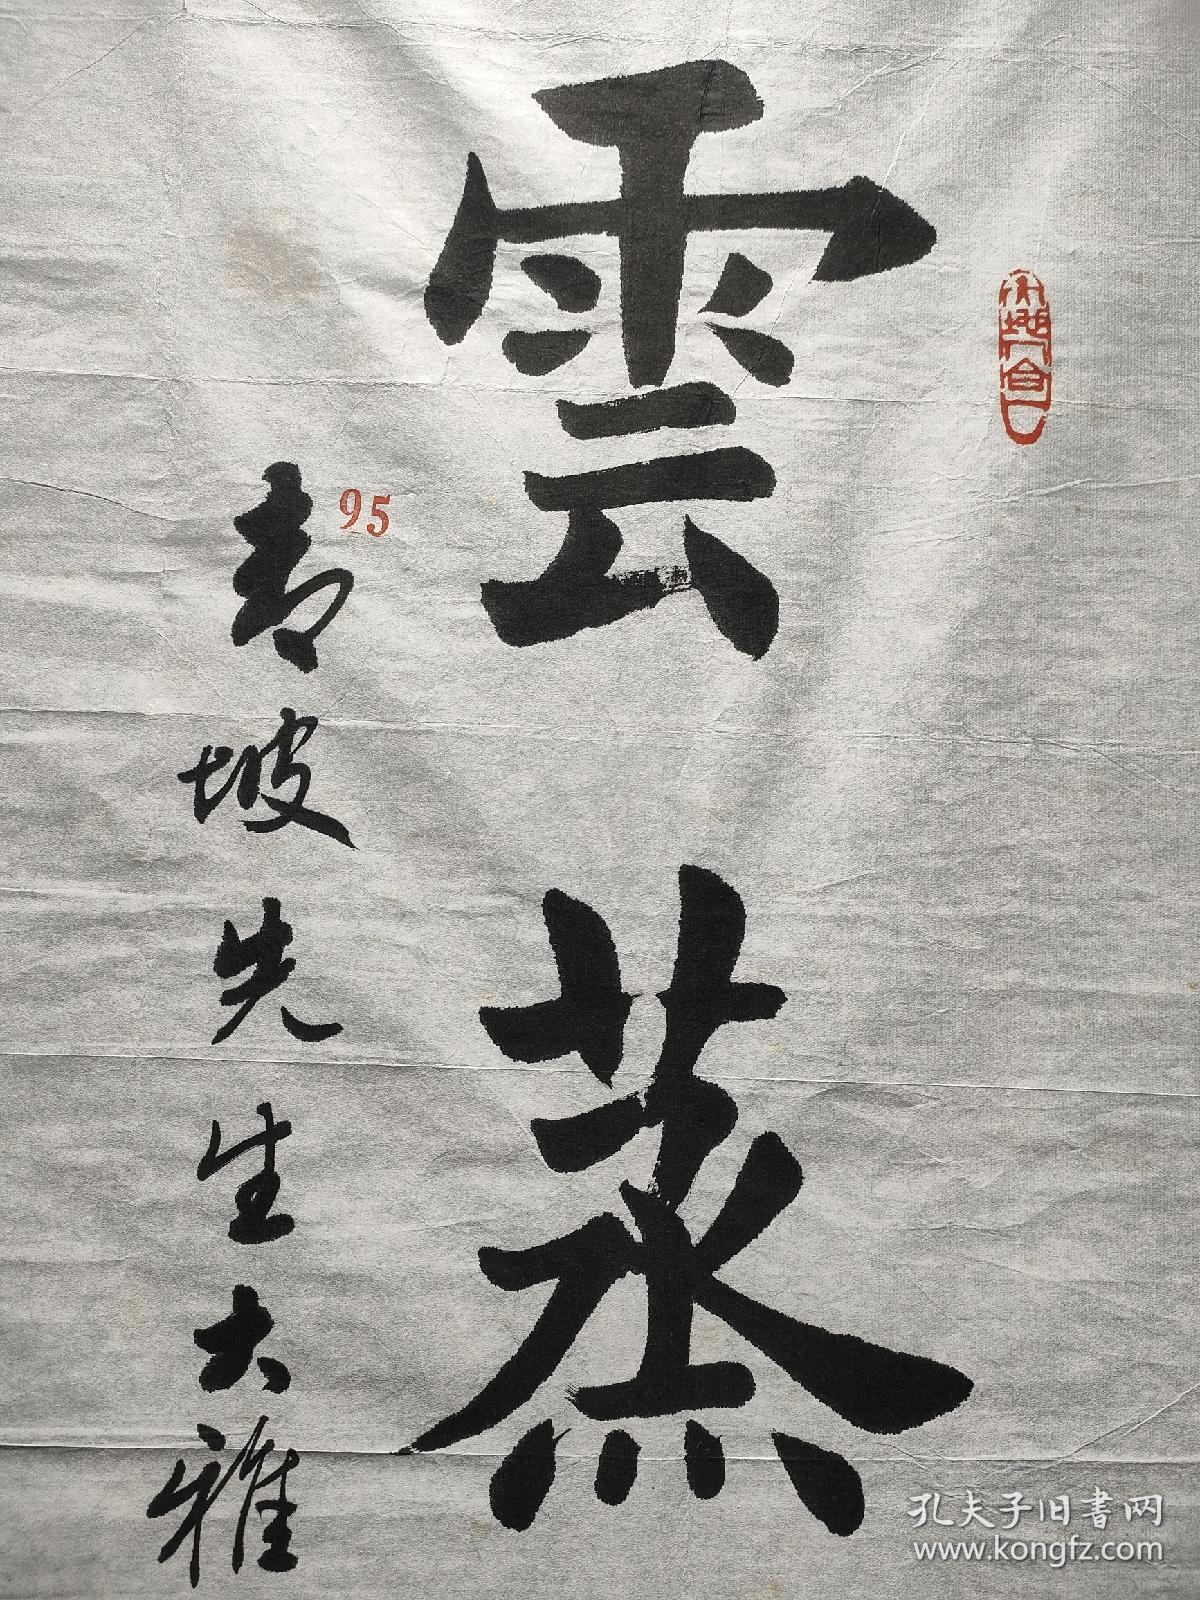 雲蒸
95
青坡先生大雅
孔夫子旧書网
www.kongfz.com